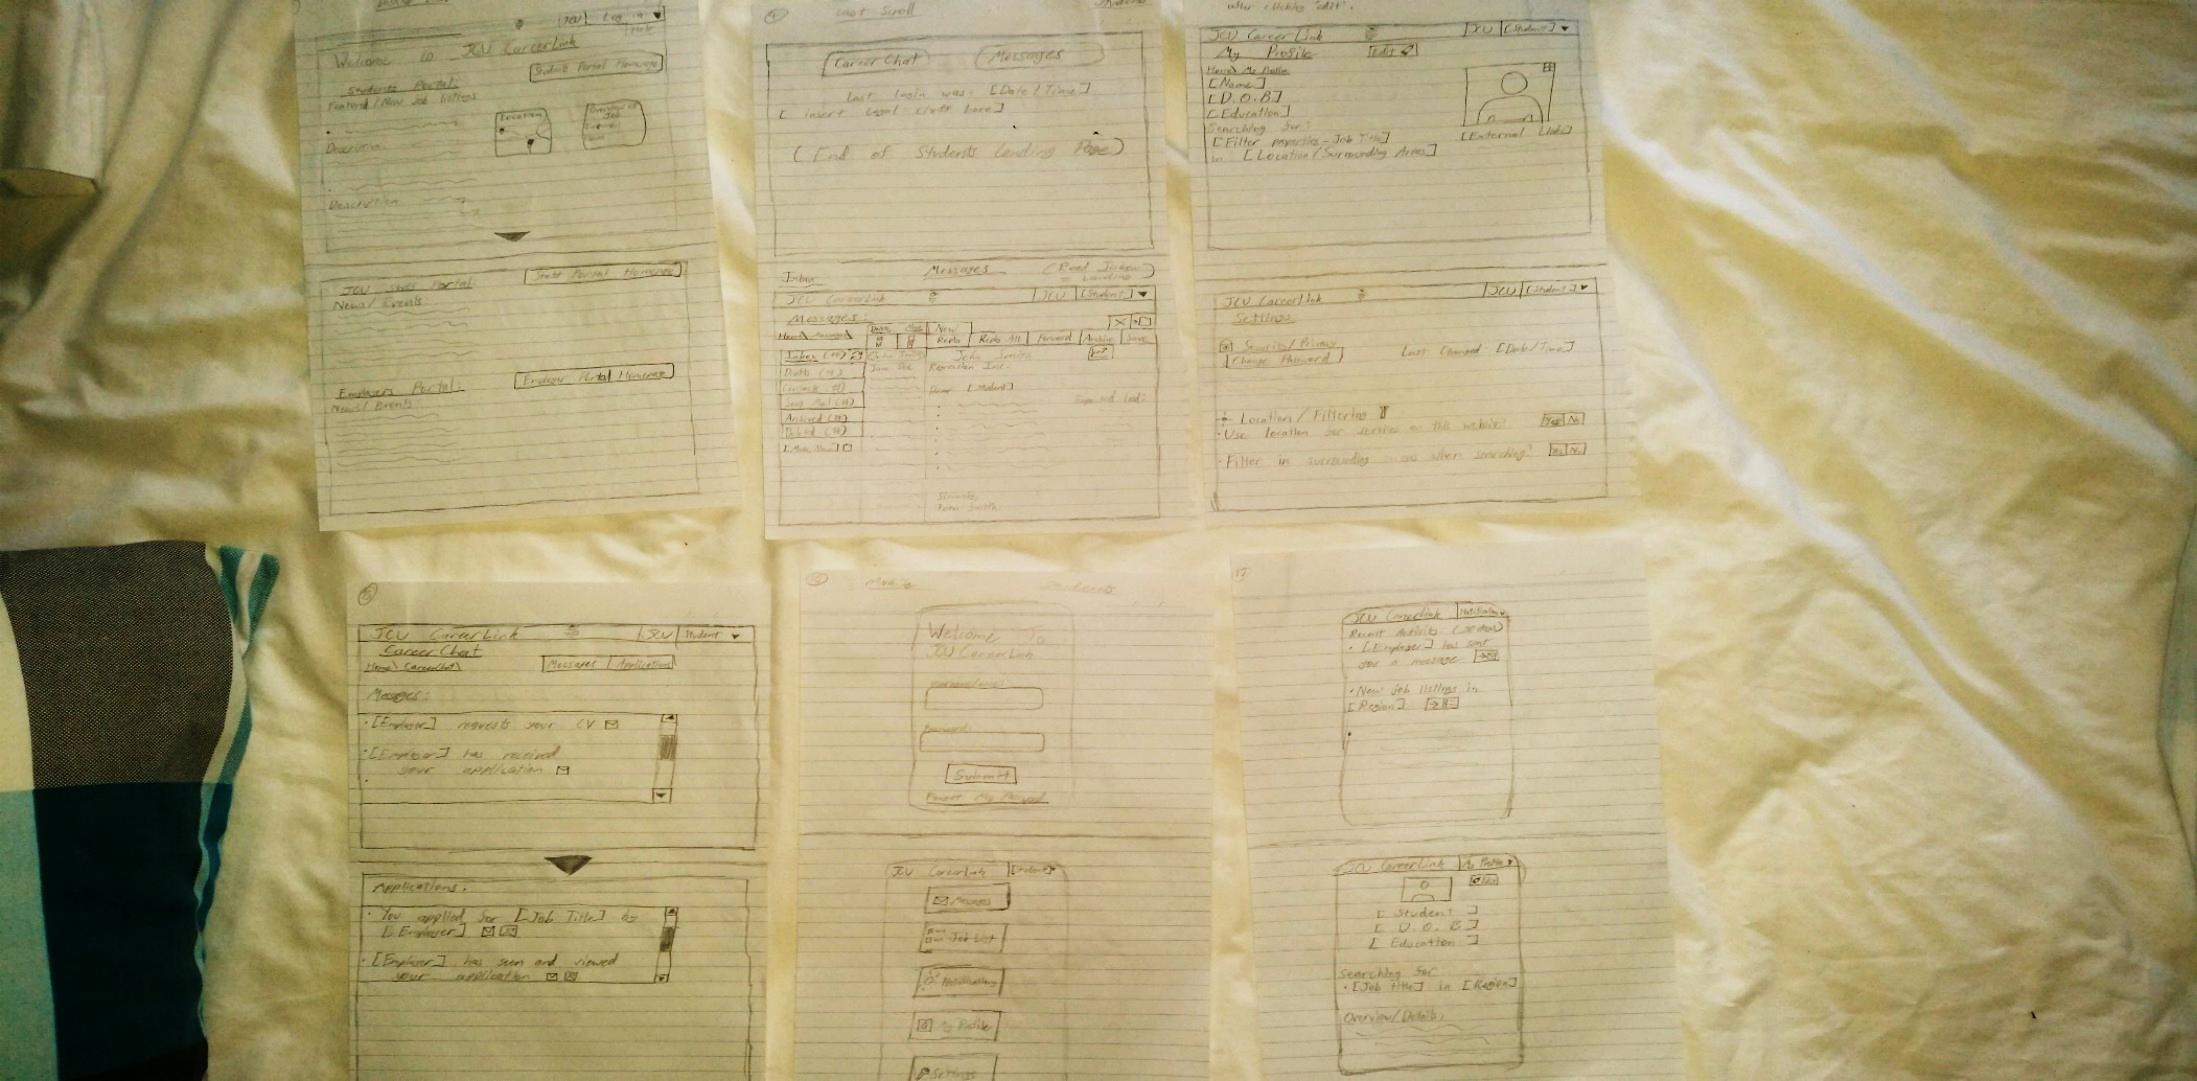 JCU Log in ▼
Welcome to JCU CareerLink
Student Portal Homepage
Students Portal:
Featured/New Job listings
Location
Overview of Job
Description
Description
Staff Portal Homepage
JCU Staff Portal:
News/Events
Employer Portal Homepage
Employers Portal:
News/Events
4
Last Scroll
CareerChat
Messages
Last login was: [Date/Time]
[insert legal here]
(End of Students Landing Page)
Inbox
Messages
JCU CareerLink
JCU [Student] ▼
Messages:
New
Reply
Reply All
Forward
Archive
Save
Inbox (#)
John Smith
Drafts (#)
Jane Doe
Dear [Student]
Sent Mail (#)
Archived (#)
Deleted (#)
Sincerely,
after clicking 'edit'.
JCU CareerLink
JCU [Student] ▼
My Profile
Edit
Home\ My Profile
[Name]
[D.O.B]
[Education]
[External Links]
Searching for:
[Filter properties - Job Title]
in [Location/Surrounding Areas]
JCU CareerLink
JCU [Student] ▼
Settings
Security/Privacy
Change Password
Last Changed: [Date/Time]
Location/Filtering
• Use location for services on this website?
Yes No
• Filter in surrounding areas when searching?
Yes No
JCU CareerLink
JCU Student ▼
CareerChat
Home\ CareerChat\
Messages Applications
Messages:
• [Employer] requests your CV
• [Employer] has received
your application
Applications:
• You applied for [Job Title] by
[Employer]
• [Employer] has seen and viewed
your application
Mobile
Students
Welcome To
JCU CareerLink
Password:
Submit
Forgot My Password
JCU CareerLink
[Student]
Messages
Job List
Notifications
My Profile
Settings
JCU CareerLink
Notifications
Recent Activity
• [Employer] has sent
you a message
• New job listings in
[Region]
JCU CareerLink
My Profile ▼
Edit
[Student]
[D.O.B]
[Education]
Searching for
• [Job title] in [Region]
Overview/Details: